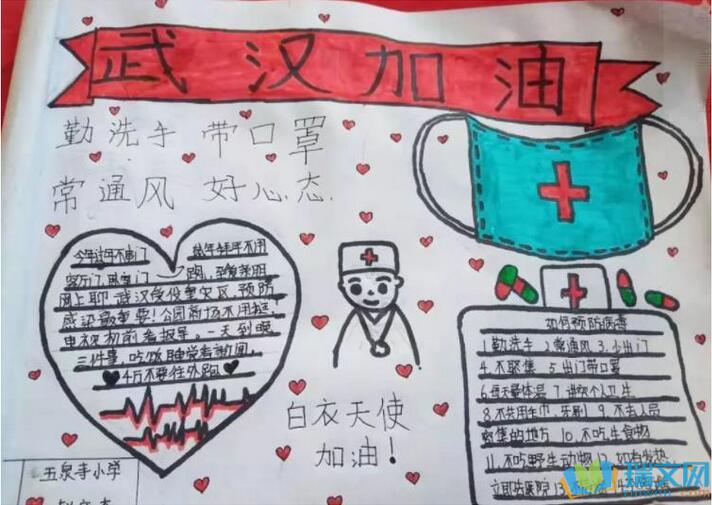 武汉加油
勤洗手 带口罩
常通风 好心态
今年过年不串门
拜年拜年不用
串门
网上聊 武汉疫役重灾区,预防
感染最重要!公园商场不用挺,
电视机前看报导。一天到晚
三件事,吃饭睡觉看新闻,
4万不要往外跑
白衣天使
加油!
如何预防病毒
1.勤洗手 2.常通风 3.少出门
4.不聚集 5.出门带口罩
6.每天量体温 7.讲究个人卫生
8.不共用毛巾、牙刷 9.不去人员
密集的地方 10.不吃生食物
11.不吃野生动物 12.如有发热
立即去医院 13
五泉寺小学
瑞文网